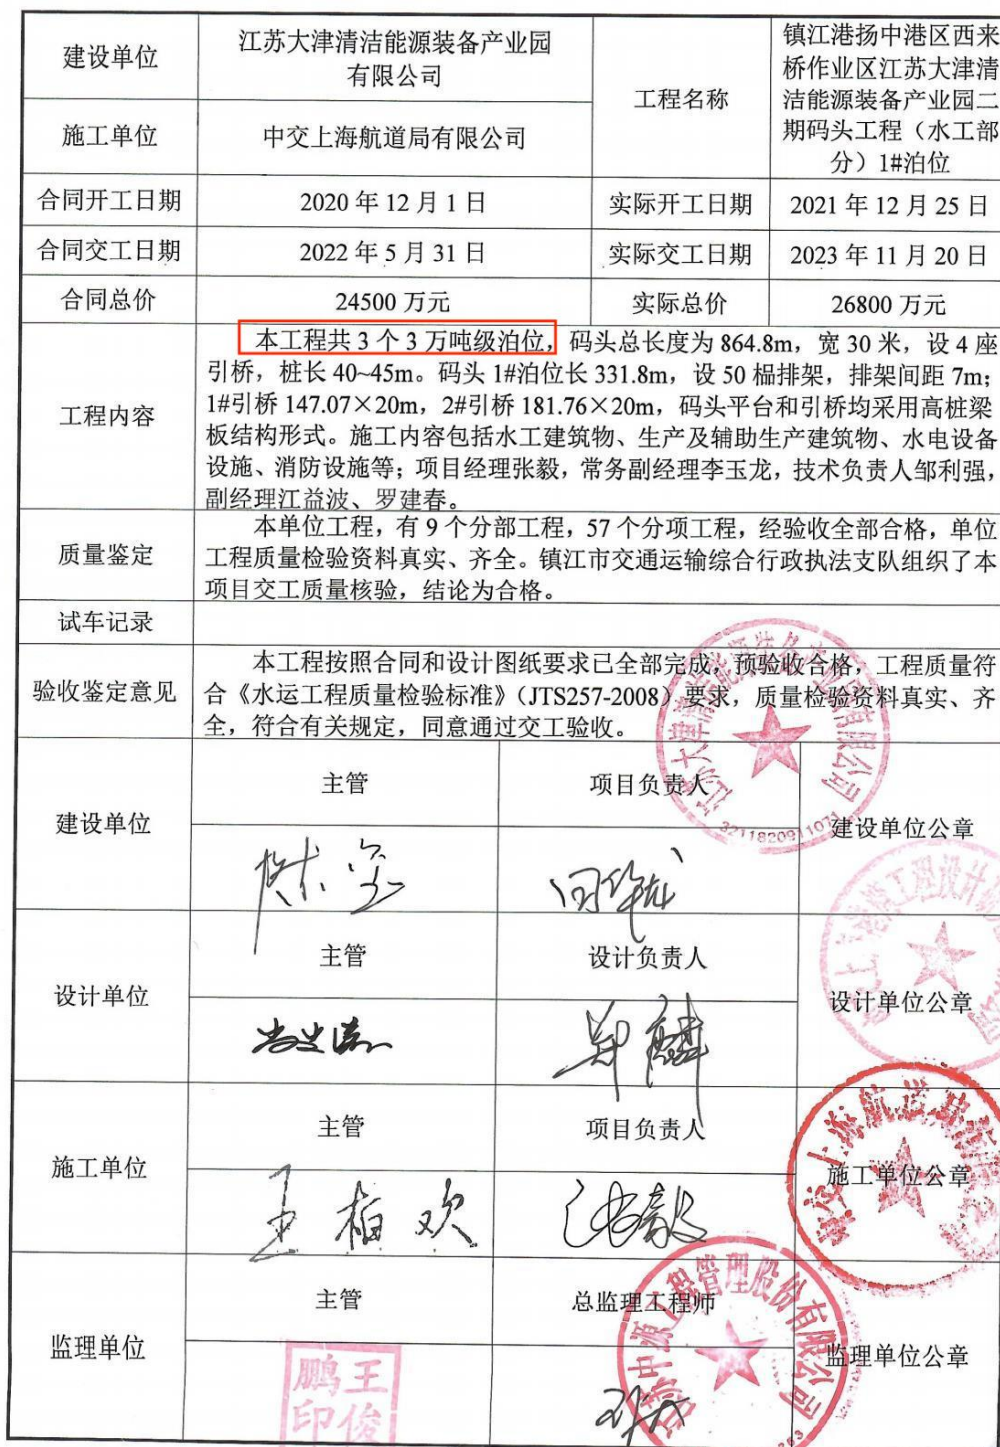 建设单位
江苏大津清洁能源装备产业园
有限公司
工程名称
镇江港扬中港区西来
桥作业区江苏大津清
洁能源装备产业园二
期码头工程（水工部
分）1#泊位
施工单位
中交上海航道局有限公司
合同开工日期
2020 年 12 月 1 日
实际开工日期
2021 年 12 月 25 日
合同交工日期
2022 年 5 月 31 日
实际交工日期
2023 年 11 月 20 日
合同总价
24500 万元
实际总价
26800 万元
工程内容
本工程共 3 个 3 万吨级泊位，码头总长度为 864.8m，宽 30 米，设 4 座
引桥，桩长 40~45m。码头 1#泊位长 331.8m，设 50 榀排架，排架间距 7m；
1#引桥 147.07×20m，2#引桥 181.76×20m，码头平台和引桥均采用高桩梁
板结构形式。施工内容包括水工建筑物、生产及辅助生产建筑物、水电设备
设施、消防设施等；项目经理张毅，常务副经理李玉龙，技术负责人邹利强，
副经理江益波、罗建春。
质量鉴定
本单位工程，有 9 个分部工程，57 个分项工程，经验收全部合格，单位
工程质量检验资料真实、齐全。镇江市交通运输综合行政执法支队组织了本
项目交工质量核验，结论为合格。
试车记录
验收鉴定意见
本工程按照合同和设计图纸要求已全部完成，预验收合格，工程质量符
合《水运工程质量检验标准》（JTS257-2008）要求，质量检验资料真实、齐
全，符合有关规定，同意通过交工验收。
江苏大津清洁能源装备产业园有限公司
3211820911071
建设单位
主管
项目负责人
建设单位公章
设计单位
主管
设计负责人
设计单位公章
郑麟
施工单位
主管
项目负责人
施工单位公章
王柏欢
张毅
监理单位
主管
总监理工程师
监理单位公章
王俊
鹏印